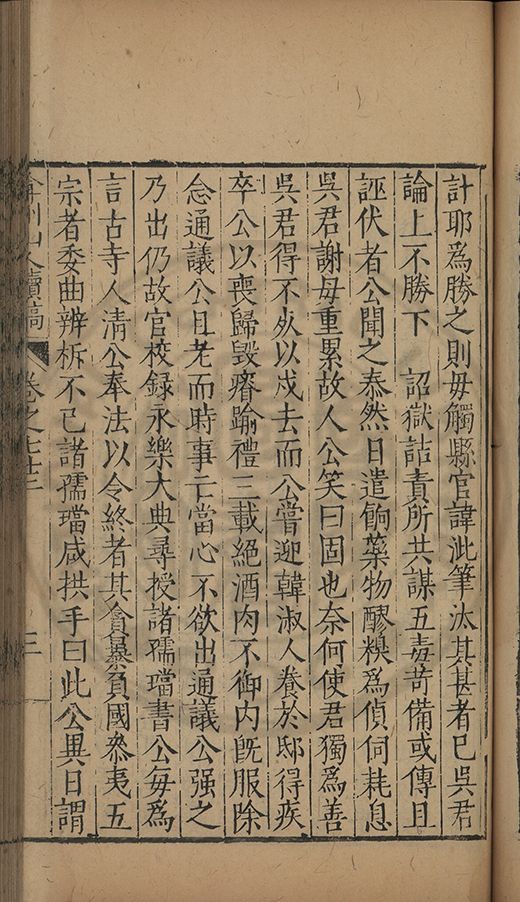 計耶為勝之則毋觸縣官諱泚筆汰其甚者已吳君
論上不勝下　詔獄詰責所共謀五毒苛備或傳且
誣伏者公聞之泰然日遣餉藥物醪糗為偵伺耗息
吳君謝毋重累故人公笑曰固也奈何使君獨為善
吳君得不死以戍去而公嘗迎韓淑人養於邸得疾
卒公以喪歸毀瘠踰禮三載絕酒肉不御內既服除
念通議公且老而時事亡當心不欲出通議公强之
乃出仍故官校録永樂大典尋授諸孺璫書公每為
言古寺人清公奉法以令終者其貪暴負國叅夷五
宗者委曲辨析不已諸孺璫咸拱手曰此公異日謂
弇州山人續稿　卷之七十三　三